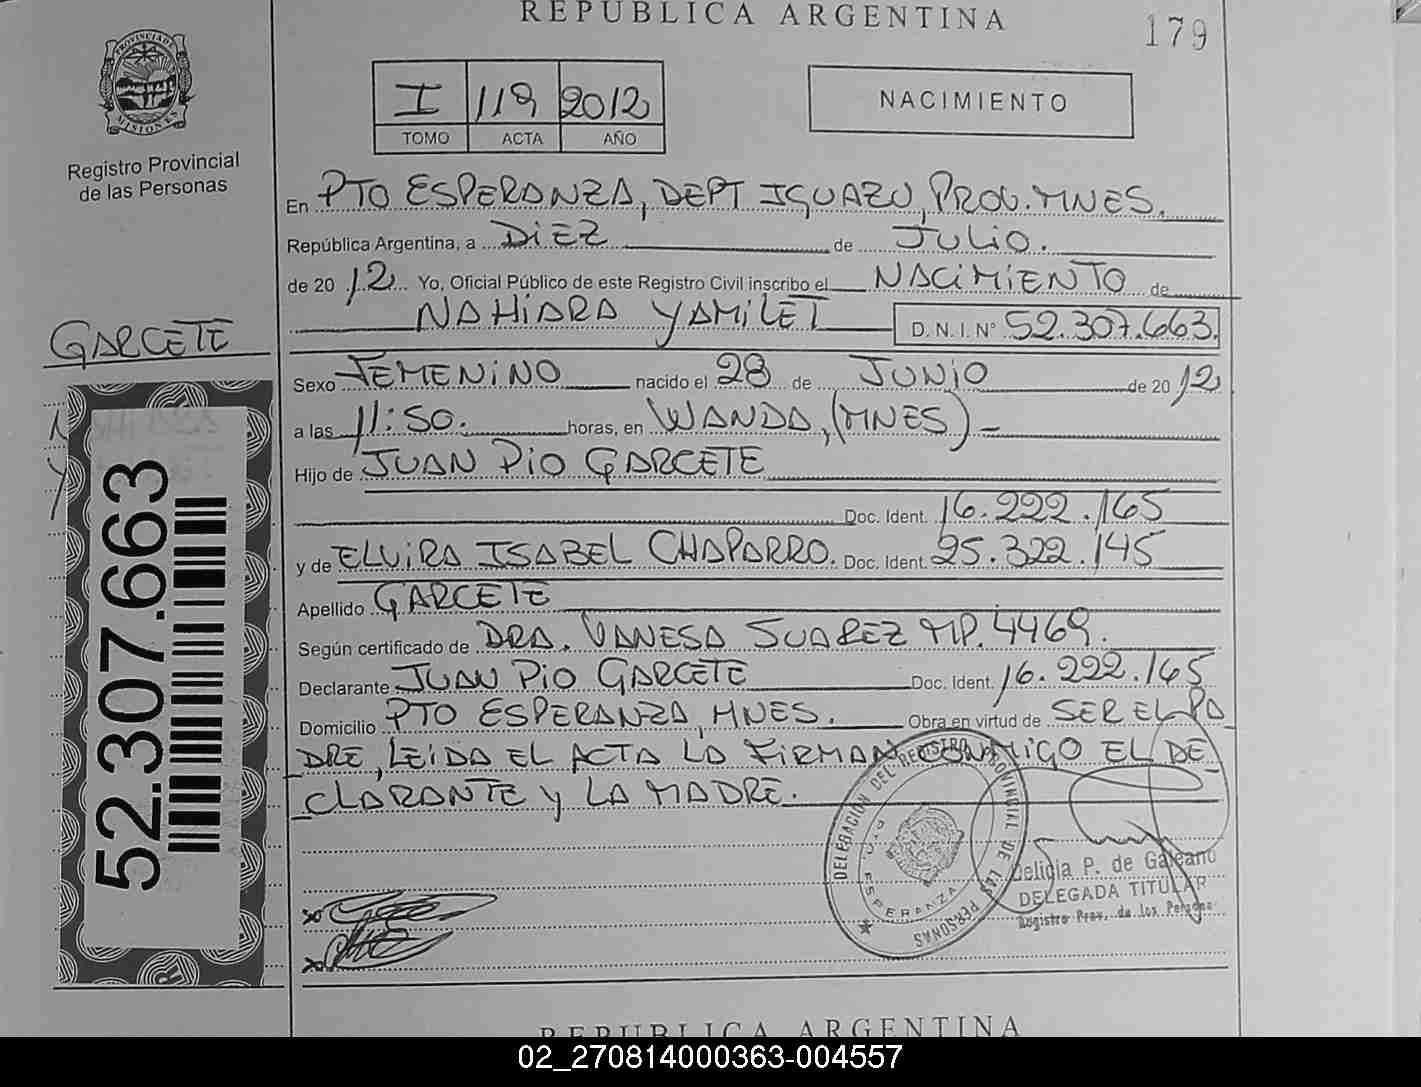 REPUBLICA ARGENTINA
179
PROVINCIA DE MISIONES
Registro Provincial
de las Personas
I 119 2012
TOMO ACTA AÑO
NACIMIENTO
En PTO ESPERANZA, DEPT IGUAZU, PROV. MNES.
República Argentina, a DIEZ de JULIO.
de 20 12 Yo, Oficial Público de este Registro Civil inscribo el NACIMIENTO de
NAHIARA YAMILET D.N.I. N° 52.307.663.
GARCETE
Sexo FEMENINO nacido el 28 de JUNIO de 20 12
a las 11:50. horas, en WANDA, (MNES) -
Hijo de JUAN PIO GARCETE
Doc. Ident. 16.222.165
y de ELVIRA ISABEL CHAPARRO. Doc. Ident. 25.322.145
Apellido GARCETE
Según certificado de DRA. VANESA SUAREZ MP. 4469.
Declarante JUAN PIO GARCETE Doc. Ident. 16.222.165
Domicilio PTO ESPERANZA, MNES. Obra en virtud de SER EL PA
DRE, LEIDA EL ACTA LA FIRMAN CONMIGO EL DE_
CLARANTE Y LA MADRE.
52.307.663
DELEGACIÓN DEL REGISTRO PROVINCIAL DE LAS PERSONAS
PTO. ESPERANZA
Delicia P. de Galeano
DELEGADA TITULAR
Registro Prov. de los Personas
REPUBLICA ARGENTINA
02_270814000363-004557